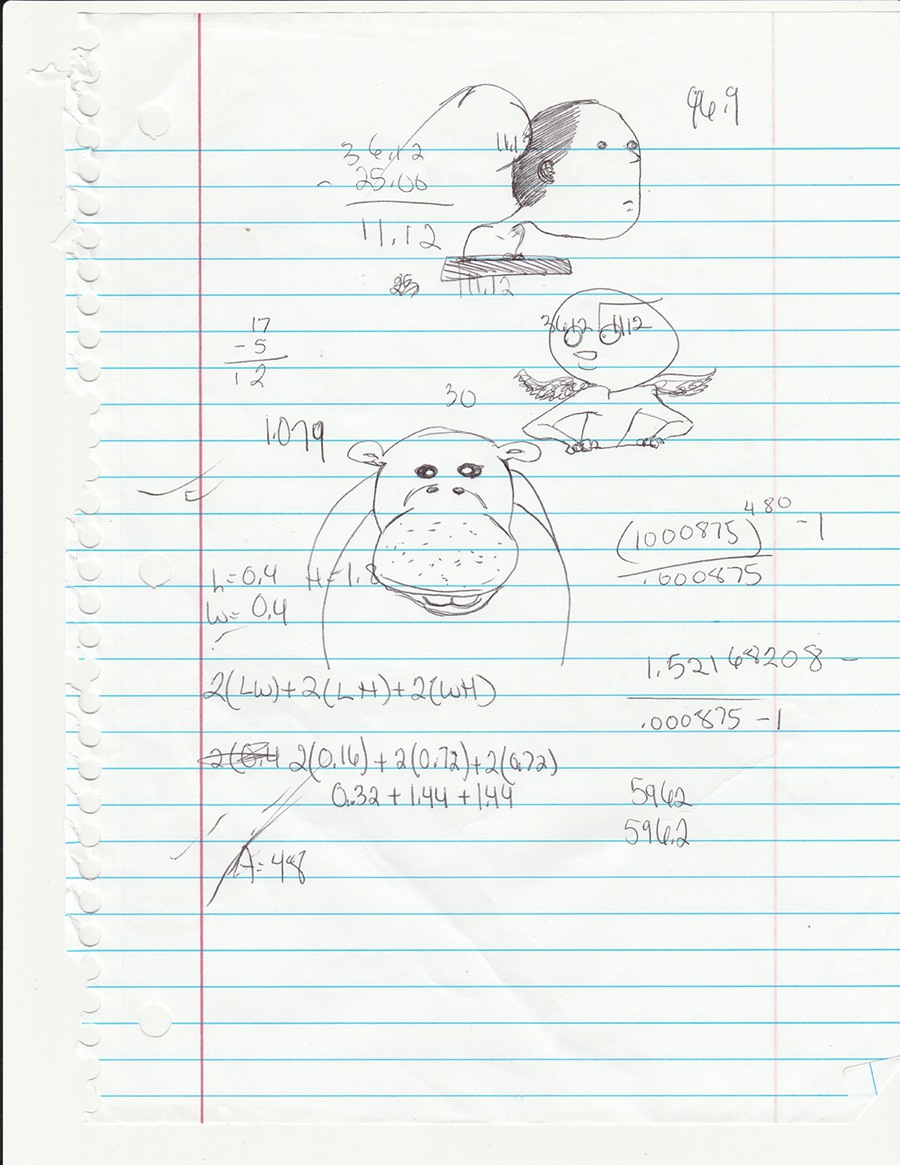 96.9
11.12
36.12
- 25.00
11.12
25 11.12
17
- 5
12
36.12 √11.12
30
1.079
(1000875)^480 - 1
.000875
L=0.4 H=1.8
W=0.4
1.52168208 -
.000875 - 1
2(LW)+2(LH)+2(WH)
2(0.4 2(0.16)+2(0.72)+2(0.72)
0.32+1.44+1.44
5962
596.2
A=48